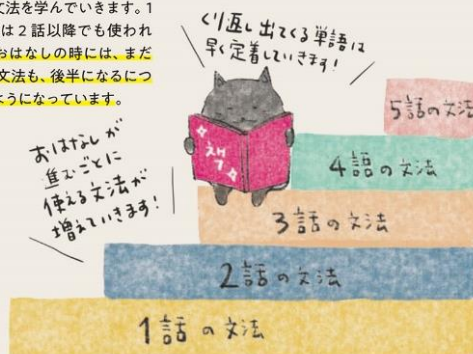 文法を学んでいきます。1
は2話以降でも使われ
おはなしの時には、まだ
文法も、後半になるにつ
ようになっています。
くり返し出てくる単語は
早く定着していきます!
おはなしが
進むごとに
使える文法が
増えていきます!
책
5話の文法
4話の文法
3話の文法
2話の文法
1話の文法